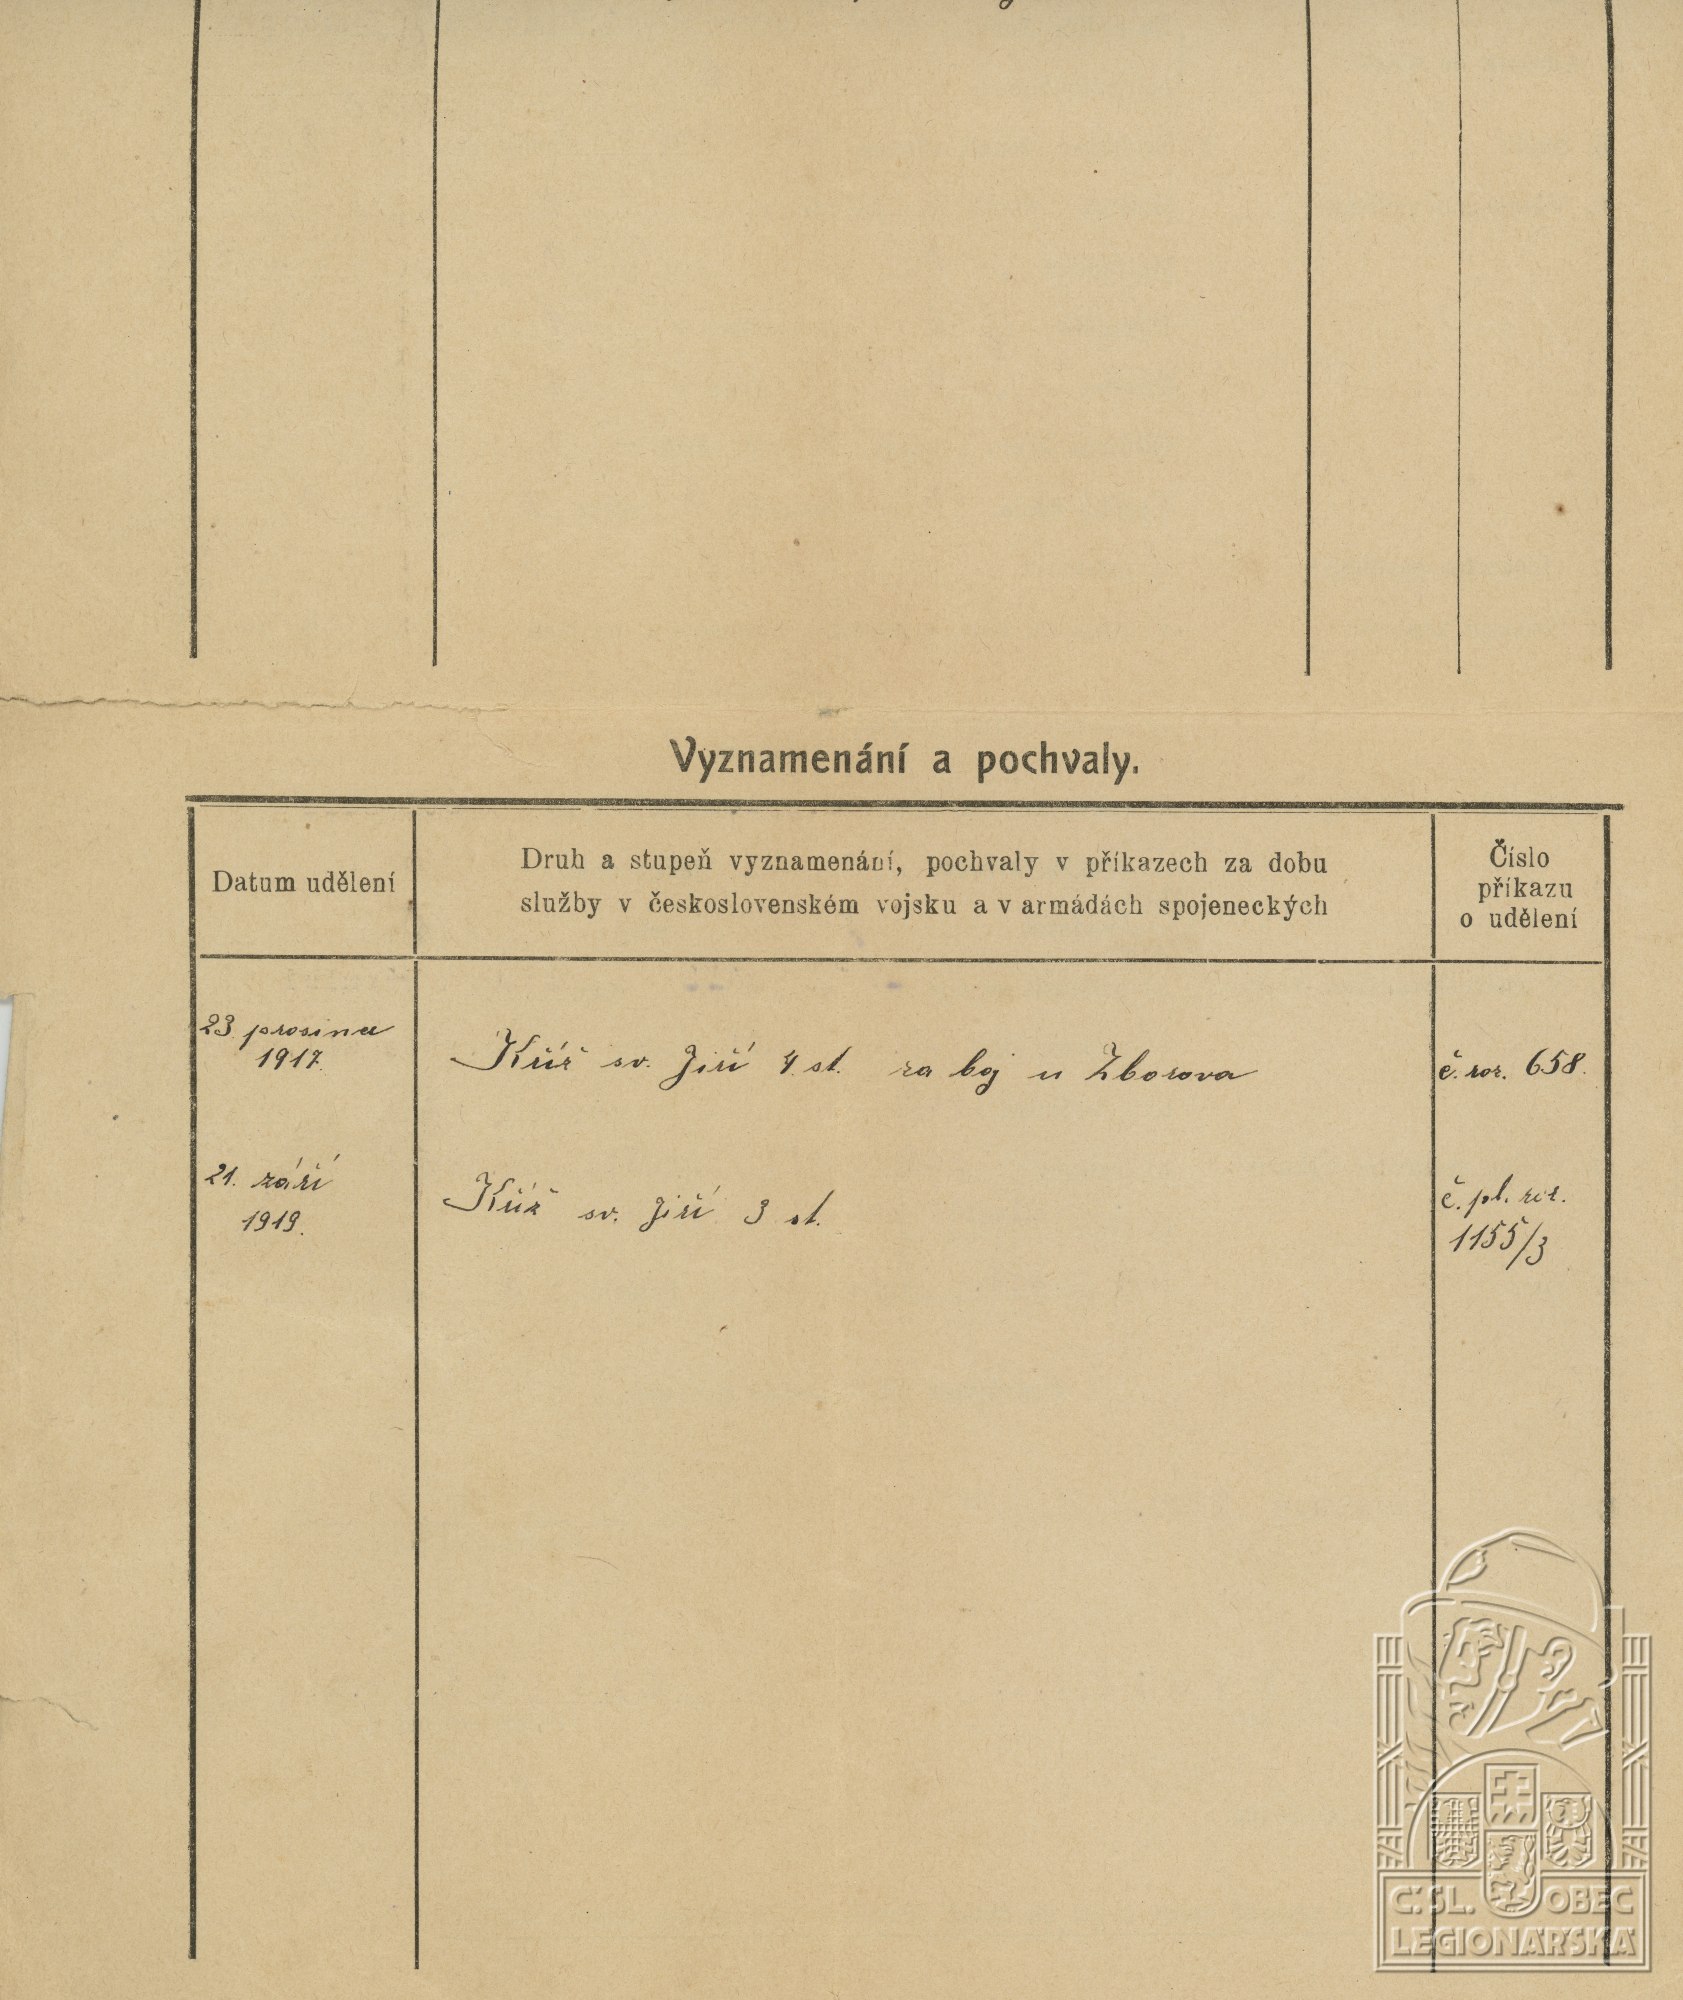 Vyznamenání a pochvaly.
Datum udělení
Druh a stupeň vyznamenání, pochvaly v příkazech za dobu
služby v československém vojsku a v armádách spojeneckých
Číslo
příkazu
o udělení
23 prosince
1917.
Kříž sv. Jiří 4. st. za boj u Zborova
č. roz. 658.
21. září
1919.
Kříž sv. Jiří 3 st.
č. pl. roz.
1155/3
Č. SL. OBEC
LEGIONÁŘSKÁ